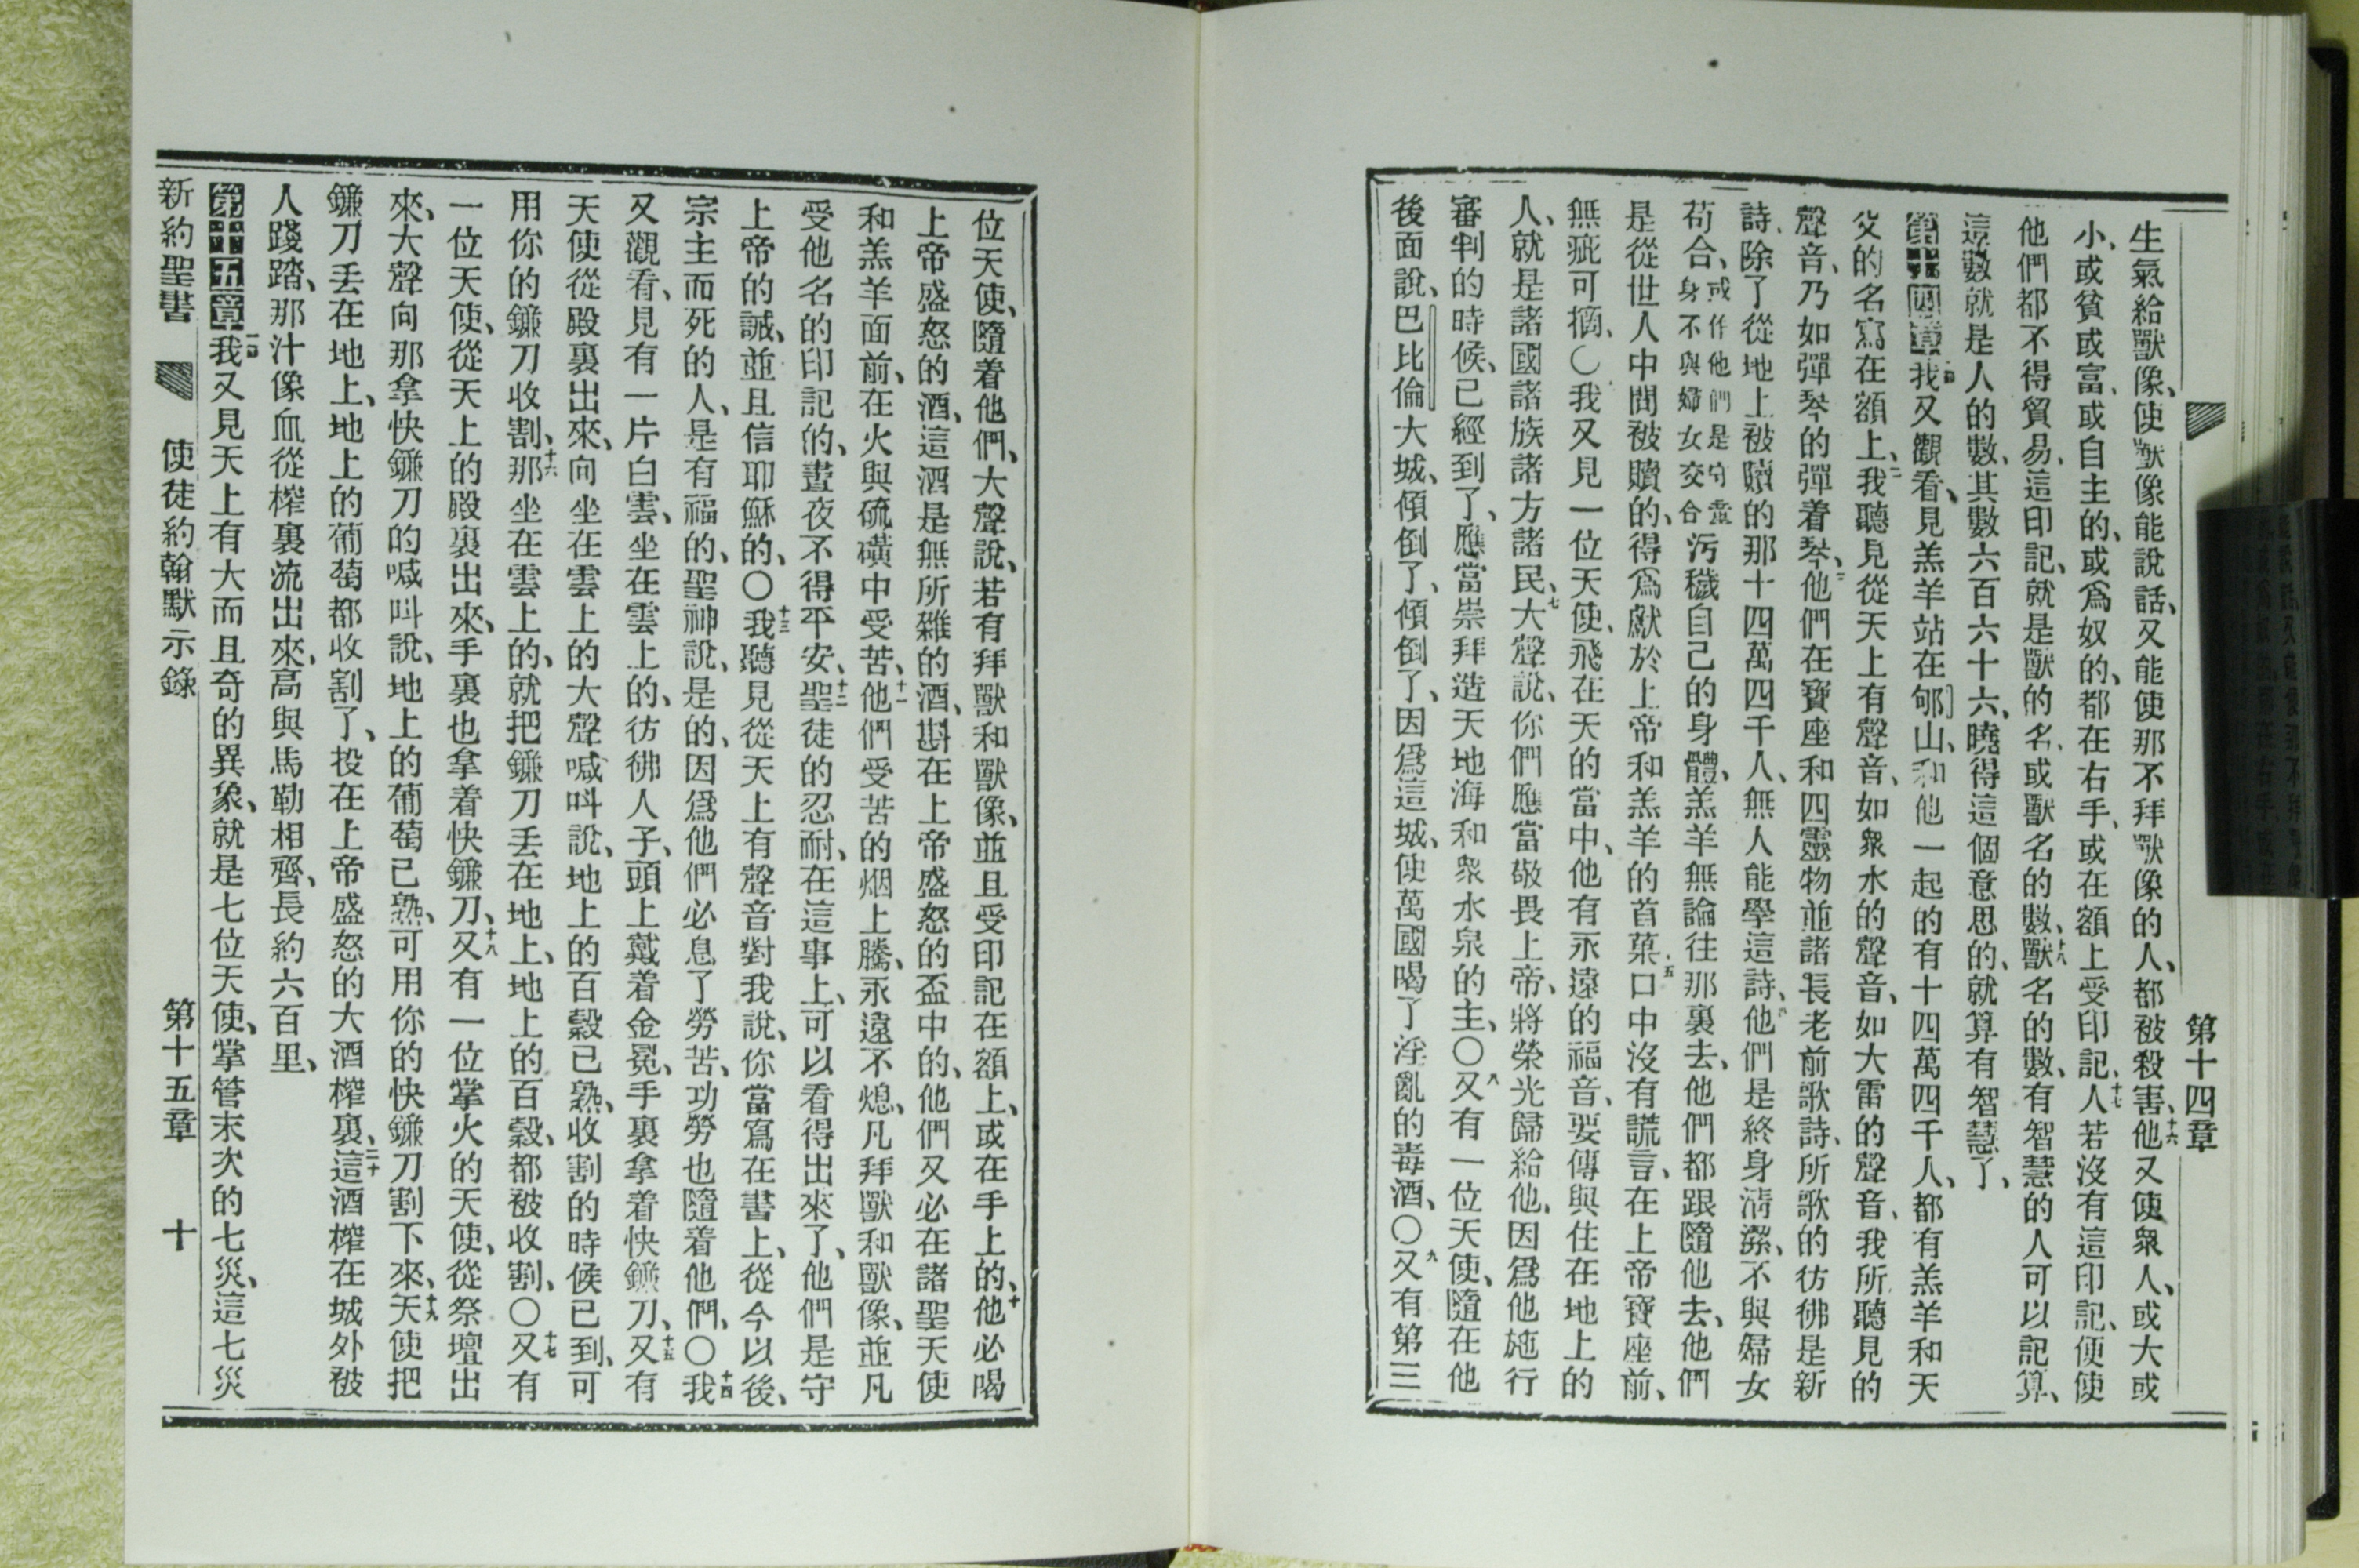 第十四章
生氣給獸像、使獸像能說話、又能使那不拜獸像的人、都被殺害、十六他又使衆人、或大或
小、或貧或富、或自主的、或爲奴的、都在右手、或在額上受印記、十七人若沒有這印記、便使
他們都不得貿易、這印記、就是獸的名、或獸名的數、十八獸名的數、有智慧的人可以記算、
這數就是人的數、其數六百六十六、曉得這個意思的、就算有智慧了、
第十四章一我又觀看、見羔羊站在郇山、和他一起的有十四萬四千人、都有羔羊和天
父的名寫在額上、二我聽見從天上有聲音、如衆水的聲音、如大雷的聲音、我所聽見的
聲音、乃如彈琴的彈着琴、三他們在寶座和四靈物並諸長老前歌詩、所歌的彷彿是新
詩、除了從地上被贖的那十四萬四千人、無人能學這詩、四他們是終身清潔、不與婦女
苟合、或作他們是守童身不與婦女交合污穢自己的身體、羔羊無論往那裏去、他們都跟隨他去、他們
是從世人中間被贖的、得爲獻於上帝和羔羊的首菓、五口中沒有謊言、在上帝寶座前、
無疵可摘、〇我又見一位天使、飛在天的當中、他有永遠的福音、要傳與住在地上的
人、就是諸國諸族諸方諸民、七大聲說、你們應當敬畏上帝、將榮光歸給他、因爲他施行
審判的時候、已經到了、應當崇拜造天地海和衆水泉的主、〇八又有一位天使、隨在他
後面說、巴比倫大城、傾倒了、傾倒了、因爲這城、使萬國喝了淫亂的毒酒、〇九又有第三
位天使、隨着他們、大聲說、若有拜獸和獸像、並且受印記在額上、或在手上的、十他必喝
上帝盛怒的酒、這酒是無所雜的酒、斟在上帝盛怒的盃中的、他們又必在諸聖天使
和羔羊面前、在火與硫磺中受苦、十一他們受苦的烟上騰、永遠不熄、凡拜獸和獸像、並凡
受他名的印記的、晝夜不得平安、十二聖徒的忍耐、在這事上、可以看得出來了、他們是守
上帝的誡、並且信耶穌的、〇十三我聽見從天上有聲音對我說、你當寫在書上、從今以後、
宗主而死的人、是有福的、聖神說、是的、因爲他們必息了勞苦、功勞也隨着他們、〇十四我
又觀看、見有一片白雲、坐在雲上的、彷彿人子、頭上戴着金冕、手裏拿着快鐮刀、十五又有
天使從殿裏出來、向坐在雲上的大聲喊叫說、地上的百穀已熟、收割的時候已到、可
用你的鐮刀收割、十六那坐在雲上的、就把鐮刀丟在地上、地上的百穀、都被收割、〇十七又有
一位天使、從天上的殿裏出來、手裏也拿着快鐮刀、十八又有一位掌火的天使、從祭壇出
來、大聲向那拿快鐮刀的喊叫說、地上的葡萄已熟、可用你的快鐮刀割下來、十九天使把
鐮刀丟在地上、地上的葡萄都收割了、投在上帝盛怒的大酒榨裏、二十這酒榨在城外被
人踐踏、那汁像血從榨裏流出來、高與馬勒相齊、長約六百里、
第十五章一我又見天上有大而且奇的異象、就是七位天使、掌管末次的七災、這七災
新約聖書 使徒約翰默示錄 第十五章 十